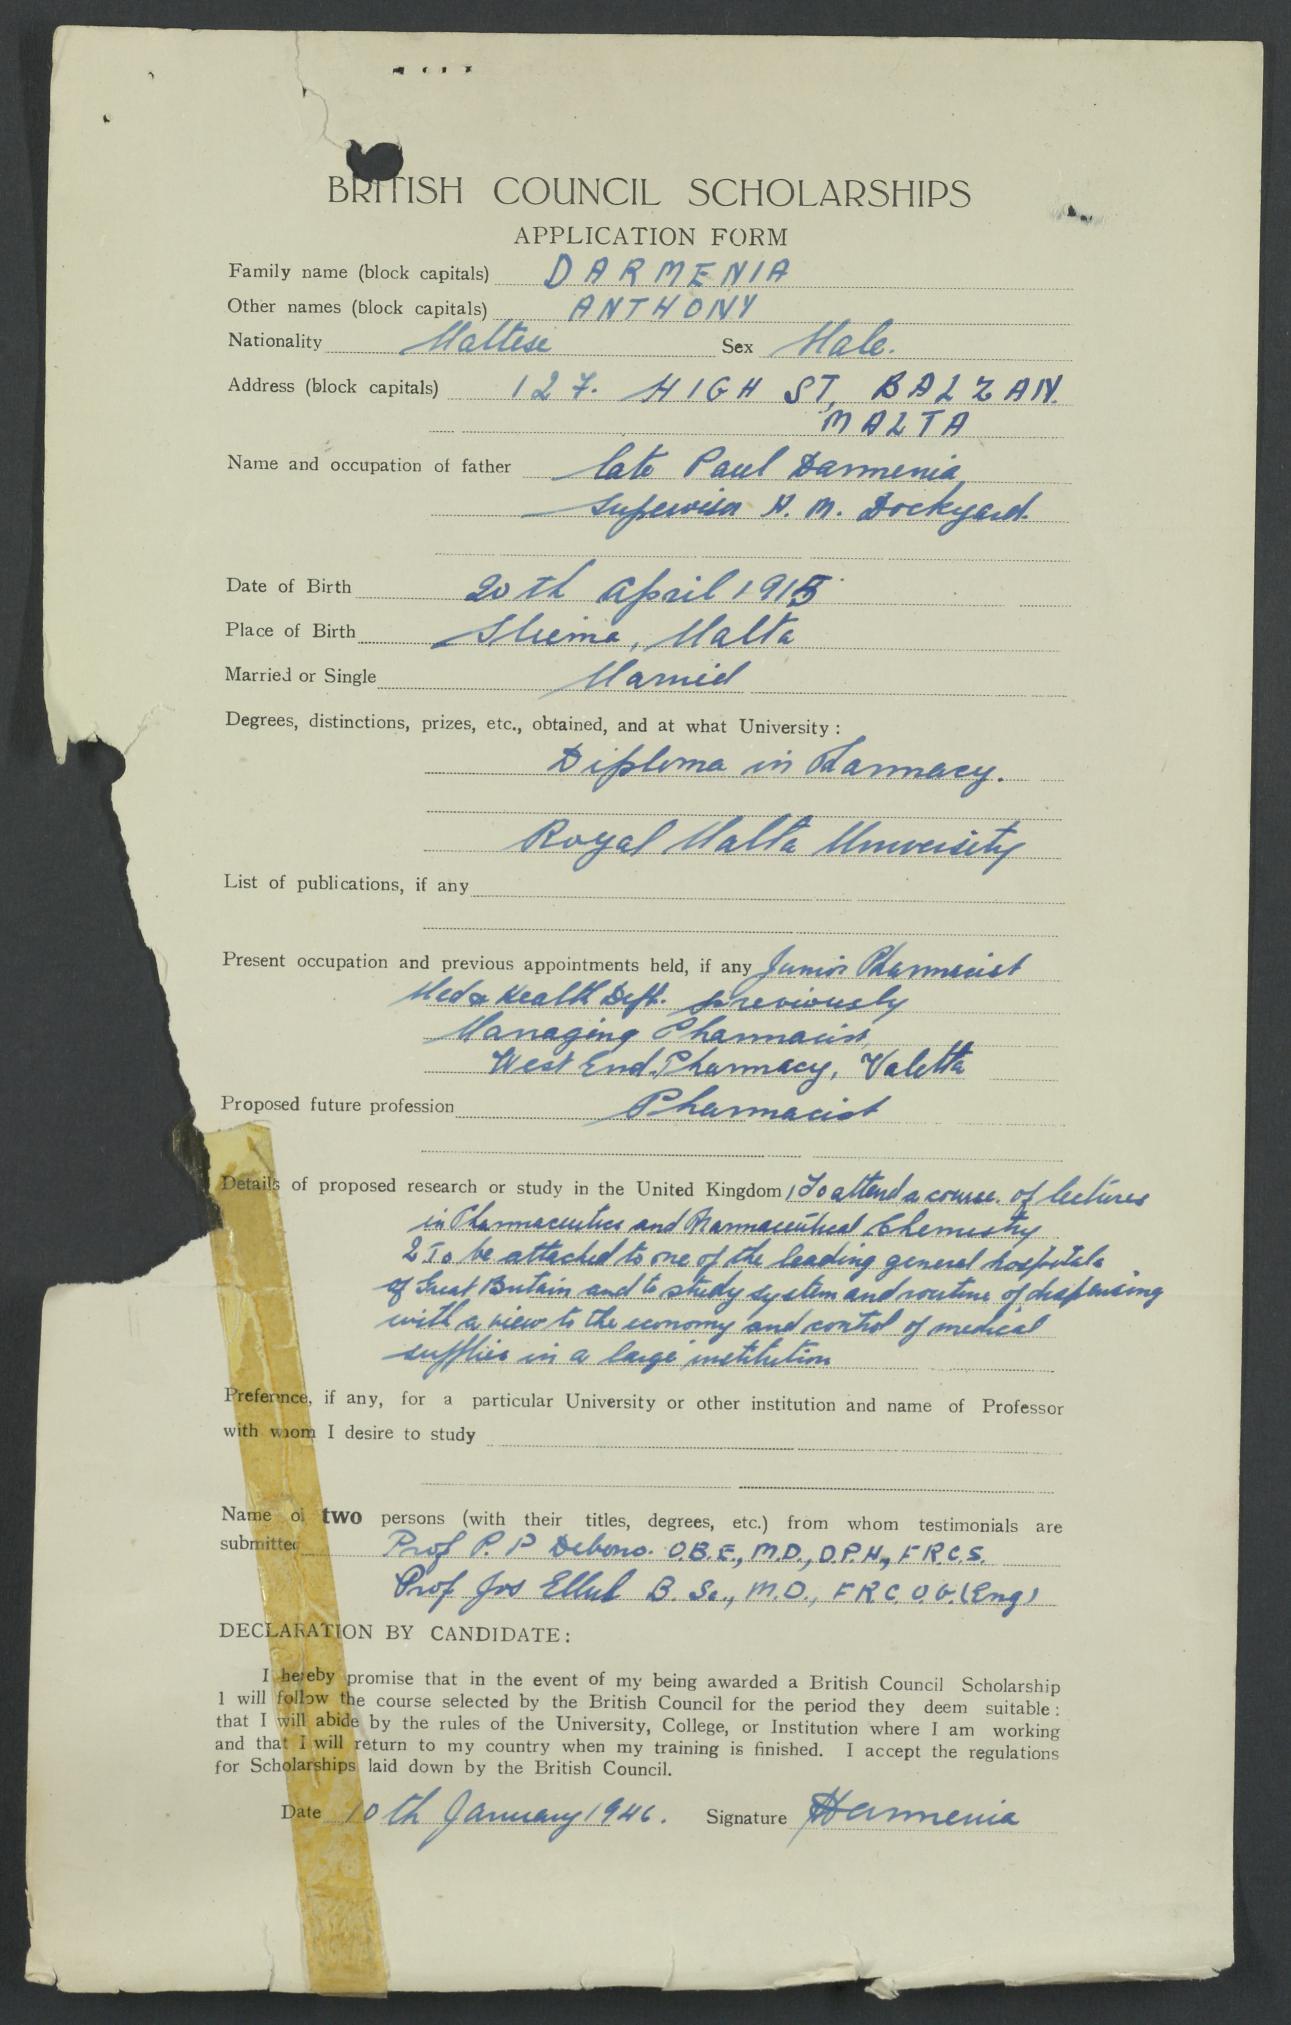 BRITISH COUNCIL SCHOLARSHIPS
APPLICATION FORM
Family name (block capitals) DARMENIA
Other names (block capitals) ANTHONY
Nationality Maltese Sex Male.
Address (block capitals) 127. HIGH ST, BALZAN.
MALTA
Name and occupation of father late Paul Darmenia
Supervisor H. M. Dockyard.
Date of Birth 20th April 1915
Place of Birth Sliema, Malta
Married or Single Married
Degrees, distinctions, prizes, etc., obtained, and at what University :
Diploma in Pharmacy.
Royal Malta University
List of publications, if any
Present occupation and previous appointments held, if any Junior Pharmacist
Med & Health Dept. previously
Managing Pharmacist,
West End Pharmacy, Valetta
Proposed future profession Pharmacist
Details of proposed research or study in the United Kingdom 1 To attend a course of lectures
in Pharmaceutics and Pharmaceutical Chemistry
2 To be attached to one of the leading general hospitals
of Great Britain and to study system and routine of dispensing
with a view to the economy and control of medical
supplies in a large institution
Preference, if any, for a particular University or other institution and name of Professor
with whom I desire to study
Name of two persons (with their titles, degrees, etc.) from whom testimonials are
submitted Prof P. P Debono. O.B.E., M.D., D.P.H., F.R.C.S.
Prof Jos Ellul B. Sc., M.D., F R C. O. G. (Eng)
DECLARATION BY CANDIDATE :
I hereby promise that in the event of my being awarded a British Council Scholarship
I will follow the course selected by the British Council for the period they deem suitable :
that I will abide by the rules of the University, College, or Institution where I am working
and that I will return to my country when my training is finished. I accept the regulations
for Scholarships laid down by the British Council.
Date 10th January 1946. Signature ADarmenia